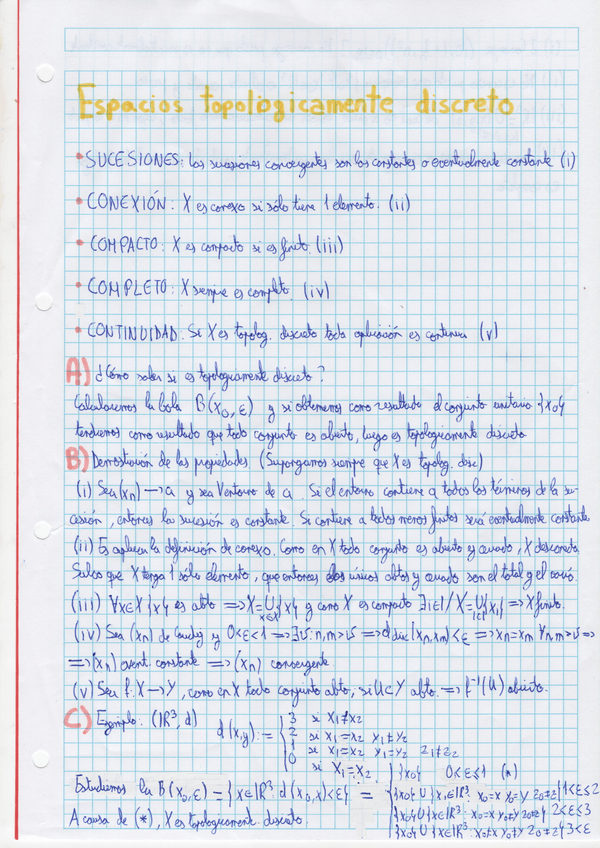 Espacios topologicamente discreto
• SUCESIONES: Las sucesiones convergentes son las constantes o eventualmente constante (i)
• CONEXIÓN: X es conexo si sólo tiene 1 elemento. (ii)
• COMPACTO: X es compacto si es finito. (iii)
• COMPLETO: X siempre es completo (iv)
• CONTINUIDAD. Si X es topolog. discreto toda aplicación es continua (v)
A) ¿Cómo saber si es topologicamente discreto?
Calcularemos la bola B(x₀, ε) y si obtenemos como resultado el conjunto unitario {x₀}
tendremos como resultado que todo conjunto es abierto, luego es topologicamente discreto
B) Demostración de las propiedades (Supongamos siempre que X es topolog. disc)
(i) Sea (xₙ) → a y sea V entorno de a. Si el entorno contiene a todos los términos de la su-
cesión, entonces la sucesión es constante. Si contiene a todos menos finitos será eventualmente constante
(ii) Es aplicar la definición de conexo. Como en X todo conjunto es abierto y cerrado, X desconexo
Salvo que X tenga 1 sólo elemento, que entonces los únicos abtos y cerrado son el total y el vacío.
(iii) ∀x∈X {x} es abto ⟹ X = ∪ {x} y como X es compacto ∃ i∈I / X = ∪ {xᵢ} ⟹ X finito.
(iv) Sea (xₙ) de Cauchy y 0<ε<1 ⟹ ∃υ: n,m>υ ⟹ d disc (xₙ,xₘ)<ε ⟹ xₙ=xₘ ∀n,m>υ ⟹
⟹ (xₙ) event. constante ⟹ (xₙ) convergente
(v) Sea f: X→Y, como en X todo conjunto abto, si U⊂Y abto. ⟹ f⁻¹(U) abierto.
C) Ejemplo. (ℝ³, d) d(x,y):= { 3 si x₁≠x₂
2 si x₁=x₂ y₁≠y₂
1 si x₁=x₂ y₁=y₂ z₁≠z₂
0 si x₁=x₂
Estudiemos la B(x₀,ε) = {x∈ℝ³ d(x₀,x)<ε} = { {x₀} 0<ε≤1 (*)
{x₀} ∪ {x∈ℝ³: x₀=x y₀=y z₀≠z} 1<ε≤2
{x₀} ∪ {x∈ℝ³: x₀=x y₀≠y z₀≠z} 2<ε≤3
{x₀} ∪ {x∈ℝ³: x₀≠x y₀≠y z₀≠z} 3<ε
A causa de (*), X es topologicamente discreto.